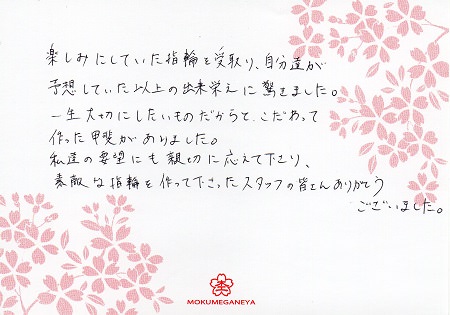 楽しみにしていた指輪を受取り、自分達が
予想していた以上の出来栄えに驚きました。
一生大切にしたいものだからと、こだわって
作った甲斐がありました。
私達の要望にも親切に応えて下さり、
素敵な指輪を作って下さったスタッフの皆さんありがとう
ございました。
MOKUMEGANEYA